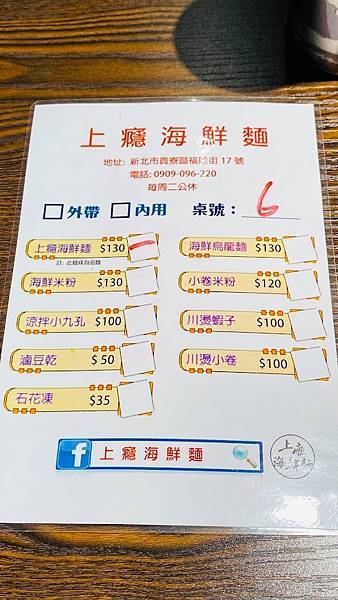 上癮海鮮麵
地址: 新北市貢寮區福隆街 17 號
電話: 0909-096-220
每周二公休
外帶 內用 桌號： 6
上癮海鮮麵 $130 海鮮烏龍麵 $130
海鮮米粉 $130 小卷米粉 $120
涼拌小九孔 $100 川燙蝦子 $100
滷豆乾 $50 川燙小卷 $100
石花凍 $35
f 上癮海鮮麵
上癮
海鮮麵